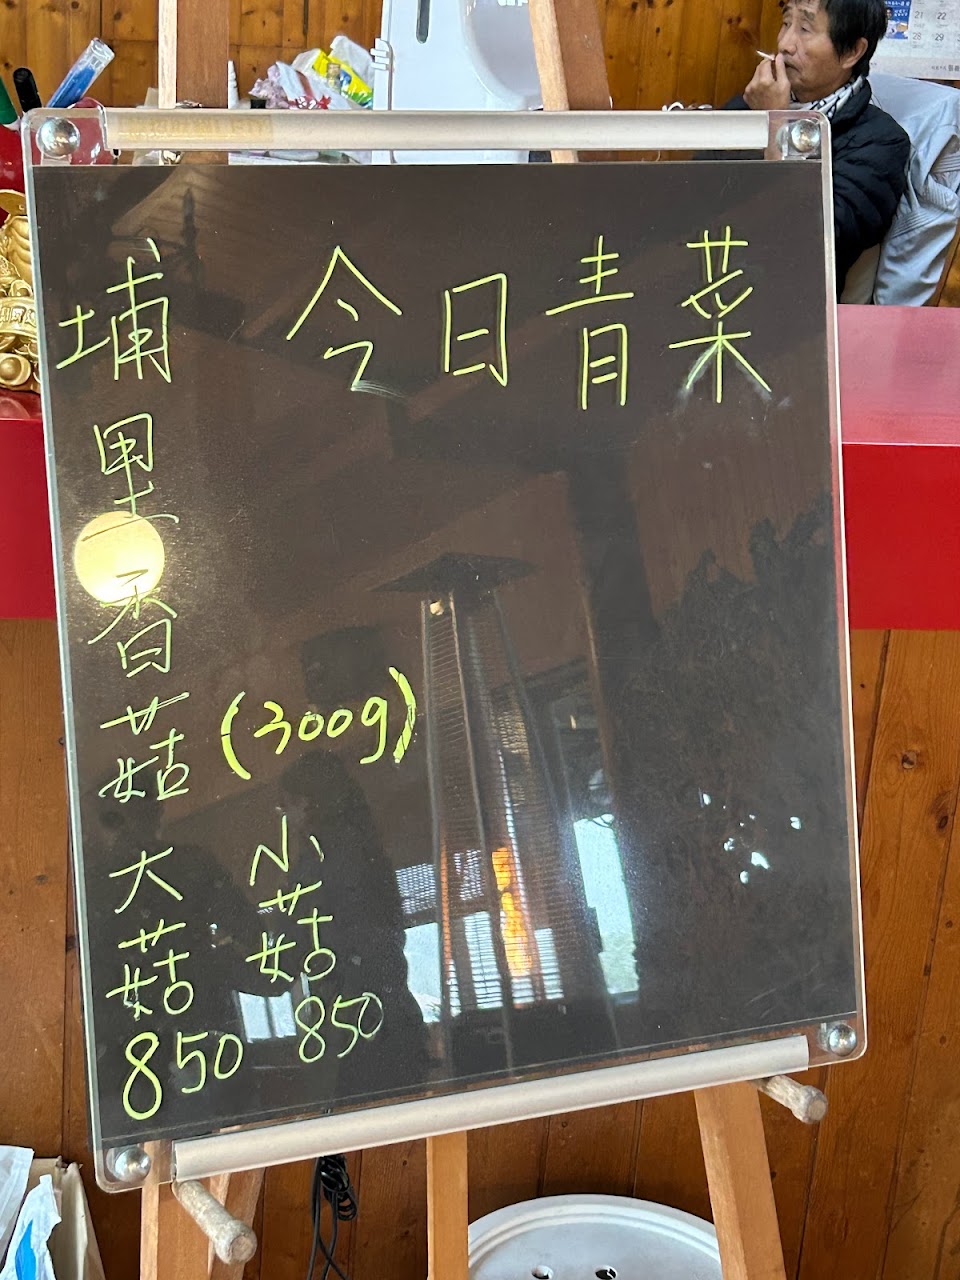 今日青菜
埔里香菇 (300g)
大菇 850
小菇 850
21 22
28 29